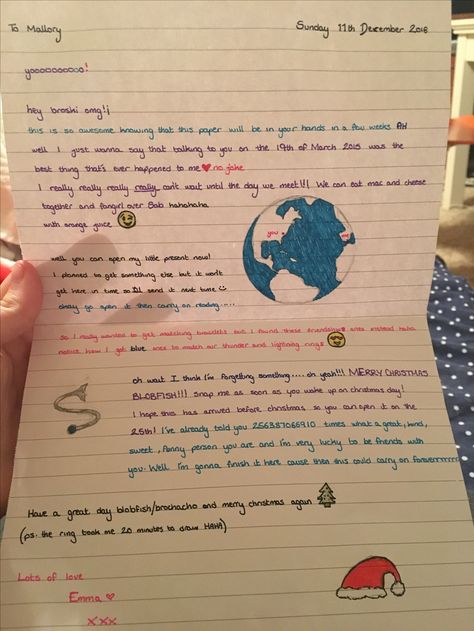 To Mallory
Sunday 11th December 2016
yoooooooooo!
hey broski omg!¡
this is so awesome knowing that this paper will be in your hands in a few weeks AH
well I just wanna say that talking to you on the 19th of March 2015 was the
best thing that's ever happened to me ♥ no joke
I really really really really can't wait until the day we meet!!! We can eat mac and cheese
together and fangirl over Sab hahahaha
with orange juice
you
me
well you can open my little present now!
I planned to get something else but it won't
get here in time so I'll send it next time
okay go open it then carry on reading.....
so I really wanted to get matching bracelets but I found these friendship ones instead haha
notice how I got blue ones to match our thunder and lightning rings
oh wait I think I'm forgetting something.... oh yeah!!! MERRY CHRISTMAS
BLOBFISH!!! Snap me as soon as you wake up on christmas day!
I hope this has arrived before christmas so you can open it on the
25th! I've already told you 256387066910 times what a great, kind,
sweet, funny person you are and I'm very lucky to be friends with
you. Well I'm gonna finish it here cause then this could carry on foreverrrrrrr
Have a great day blobfish/brochacho and merry christmas again
(ps. the ring took me 20 minutes to draw HAHA)
Lots of love
Emma ♥
xxx